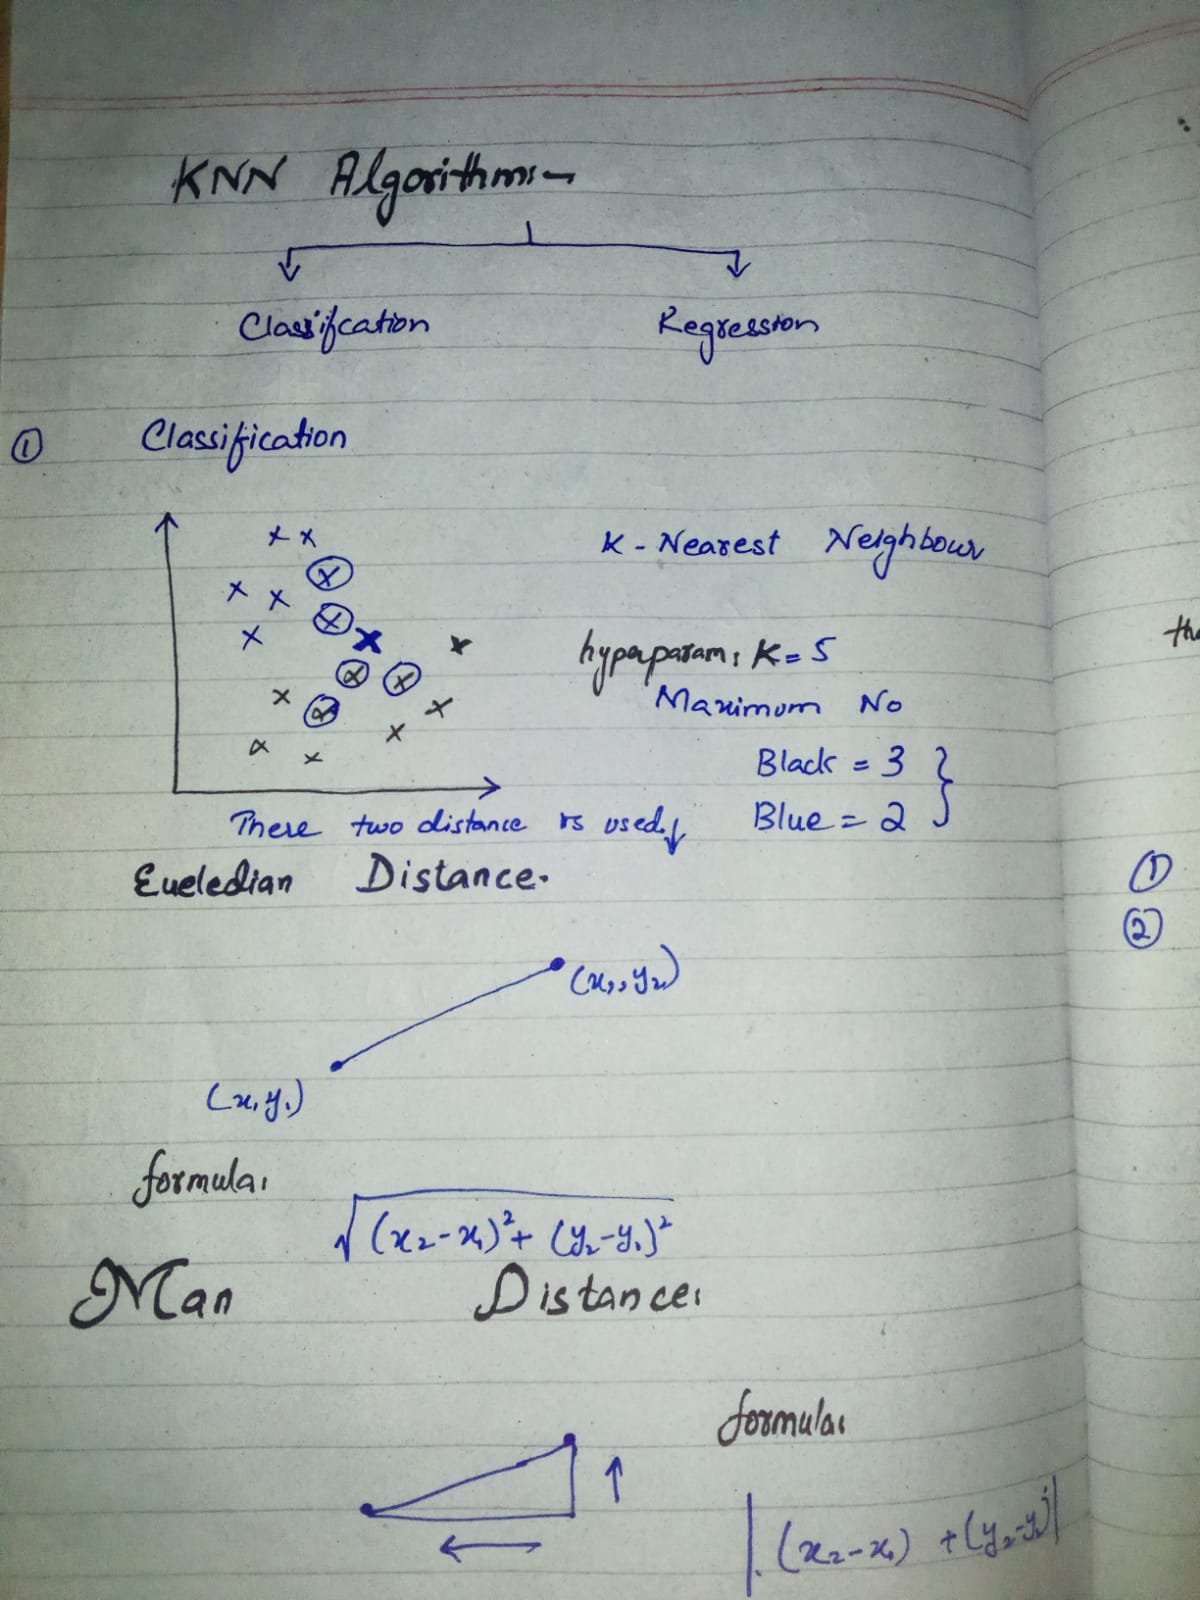 KNN Algorithm:-
Classifcation Regression
① Classification
K - Nearest Neighbour
hyperparam: K = 5
Maximum No
Black = 3
Blue = 2
There two distance is used.
Eueledian Distance.
(x₂, y₂)
(x₁ y₁)
formula:
√(x₂-x₁)² + (y₂-y₁)²
Man Distance:
formula:
|(x₂-x₁) + (y₂-y₁)|
①
②